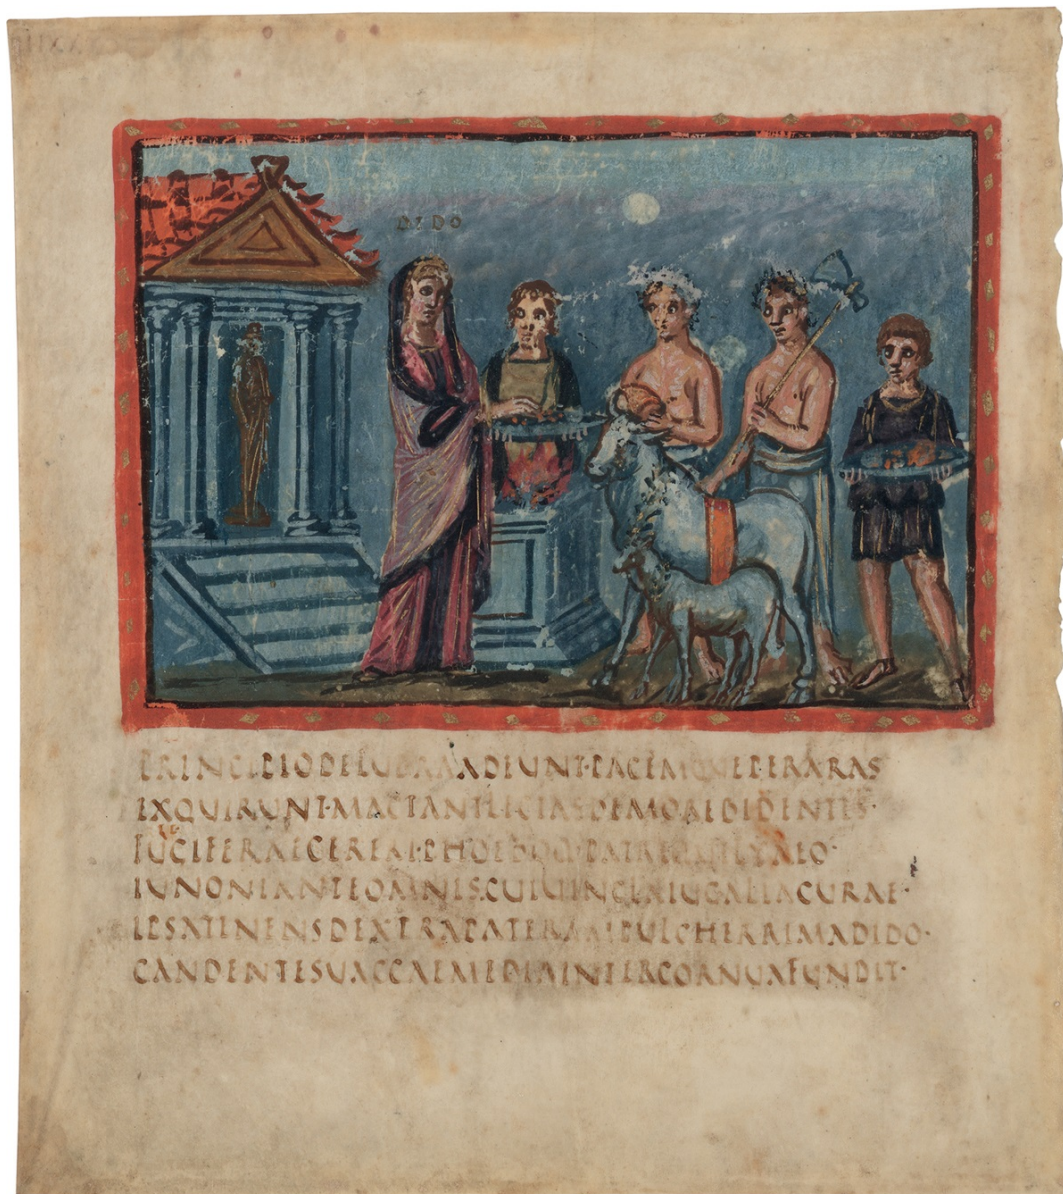 DIDO
PRINCIPIODELUBRAADEUNT·PACEMQUEPERARAS
EXQUIRUNT·MACTANTLECTASDEMOREBIDENTES·
LUCIFERAECERERI·PHOEBOQ·PATRIQUELYAEO·
IUNONIANTEOMNIS·CUIUINCLAIUGALIACURAE·
IPSATENENSDEXTRAPATERAMPULCHERRIMADIDO·
CANDENTESUACCAEMEDIAINTERCORNUAFUNDIT·